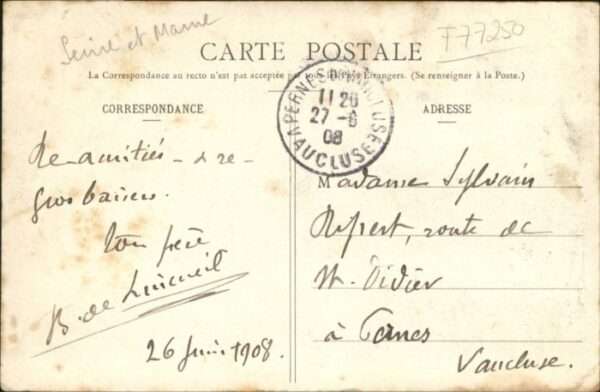 Seine et Marne
T77250
CARTE POSTALE
La Correspondance au recto n'est pas acceptée par tous les Pays Etrangers. (Se renseigner à la Poste.)
CORRESPONDANCE
ADRESSE
VAUCLUSE
11 20
27 - 6
08
Re-amitiés - & re-
gros baisers.
ton frère
B. de
26 Juin 1908.
Madame Sylvain
route de
St. Didier
à Pernes
Vaucluse.